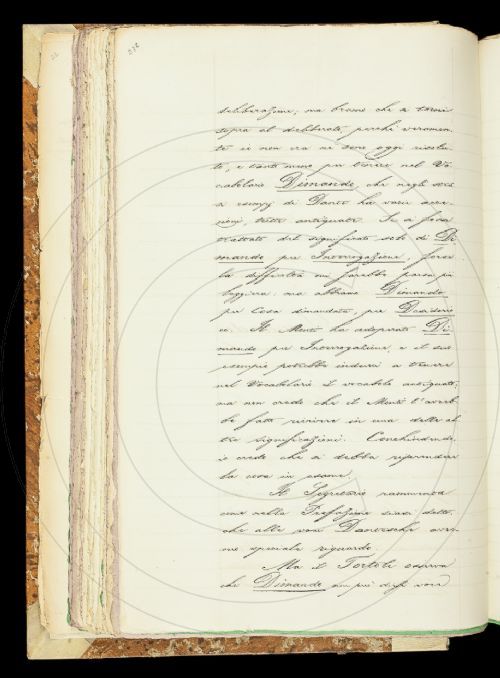 272
deliberazione; ma bramo che si torni
sopra al deliberato, perchè veramen-
te ei non era nè deve oggi risolu-
to, e tanto meno per tenere nel Vo-
cabolario Dimando, che negli scrit
e esempj di Dante ha varie acce-
zioni, tutte antiquate. Se si fosse
trattato del significato solo di Di
mando per Interrogazione, forse
la difficoltà mi sarebbe parsa più
leggiera; ma abbiamo Dimando
per Cosa dimandata, per Desiderio
ec. Il Monti ha adoperato Di-
mando per Interrogazione, e il suo
esempio potrebbe indurci a tenere
nel Vocabolario il vocabolo antiquato,
ma non credo che il Monti l'avreb-
be fatto rivivere in una delle al
tre significazioni. Conchiudendo,
io credo che si debba riprendere
la cosa in esame.
Il Segretario rammenta
come nella Prefazione siasi detto
che alle voci Dantesche avre-
mo speciale riguardo.
Ma il Tortoli osserva
che Dimando non può dirsi voce